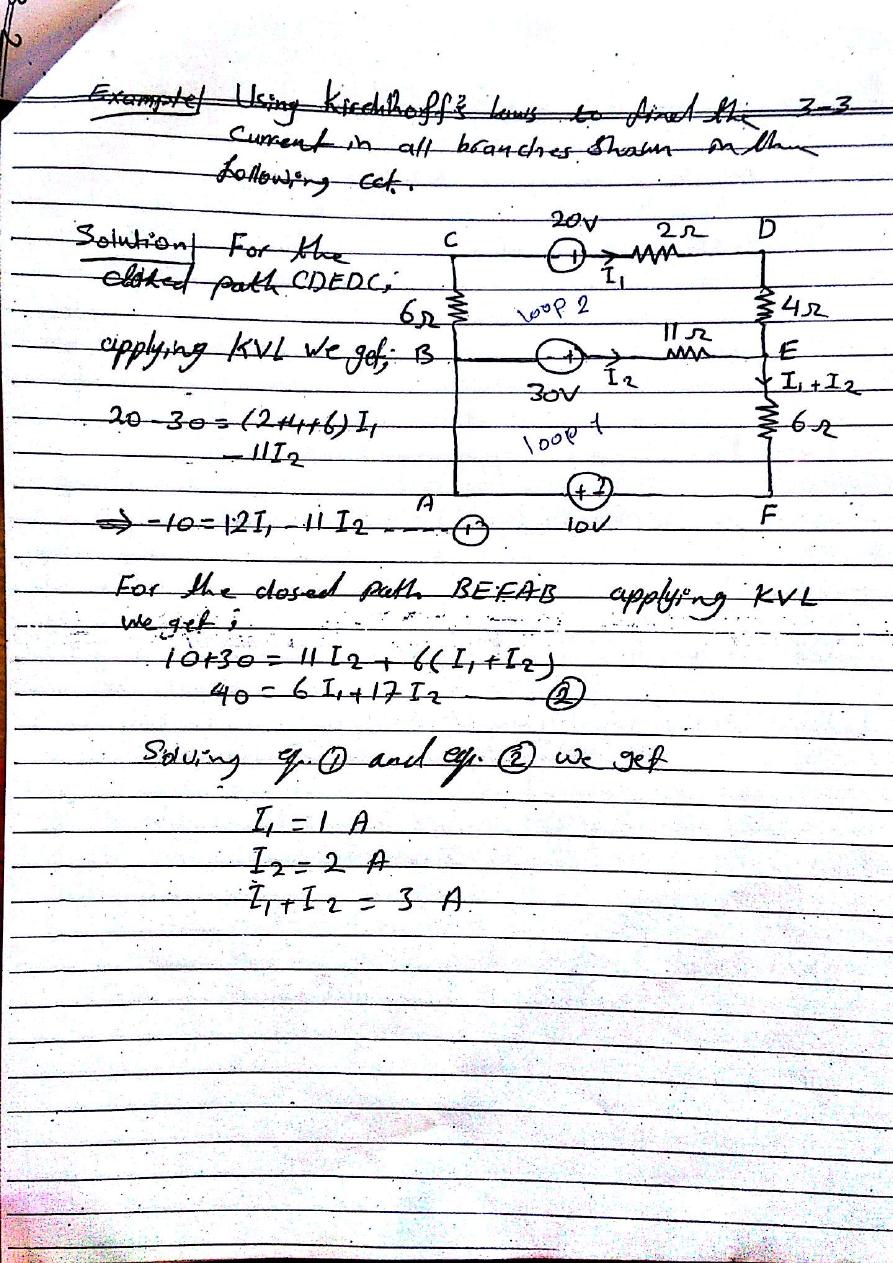 Example/ Using Kirchhoff's laws to find the 3-3
current in all branches shown in the
following cct.
Solution/ For the
closed path CDEDC;
applying KVL we get;
20 - 30 = (2+4+6) I₁
- 11 I₂
⇒ -10 = 12 I₁ - 11 I₂ ------ ①
C 20V 2Ω D
- + I₁
6Ω loop 2 4Ω
11Ω
B - + I₂ E
30V I₁ + I₂
loop 1 6Ω
A + - F
10V
For the closed path BEFAB applying KVL
we get;
10+30 = 11 I₂ + 6(I₁ + I₂)
40 = 6 I₁ + 17 I₂ ------ ②
Solving eq. ① and eq. ② we get
I₁ = 1 A
I₂ = 2 A
I₁ + I₂ = 3 A.